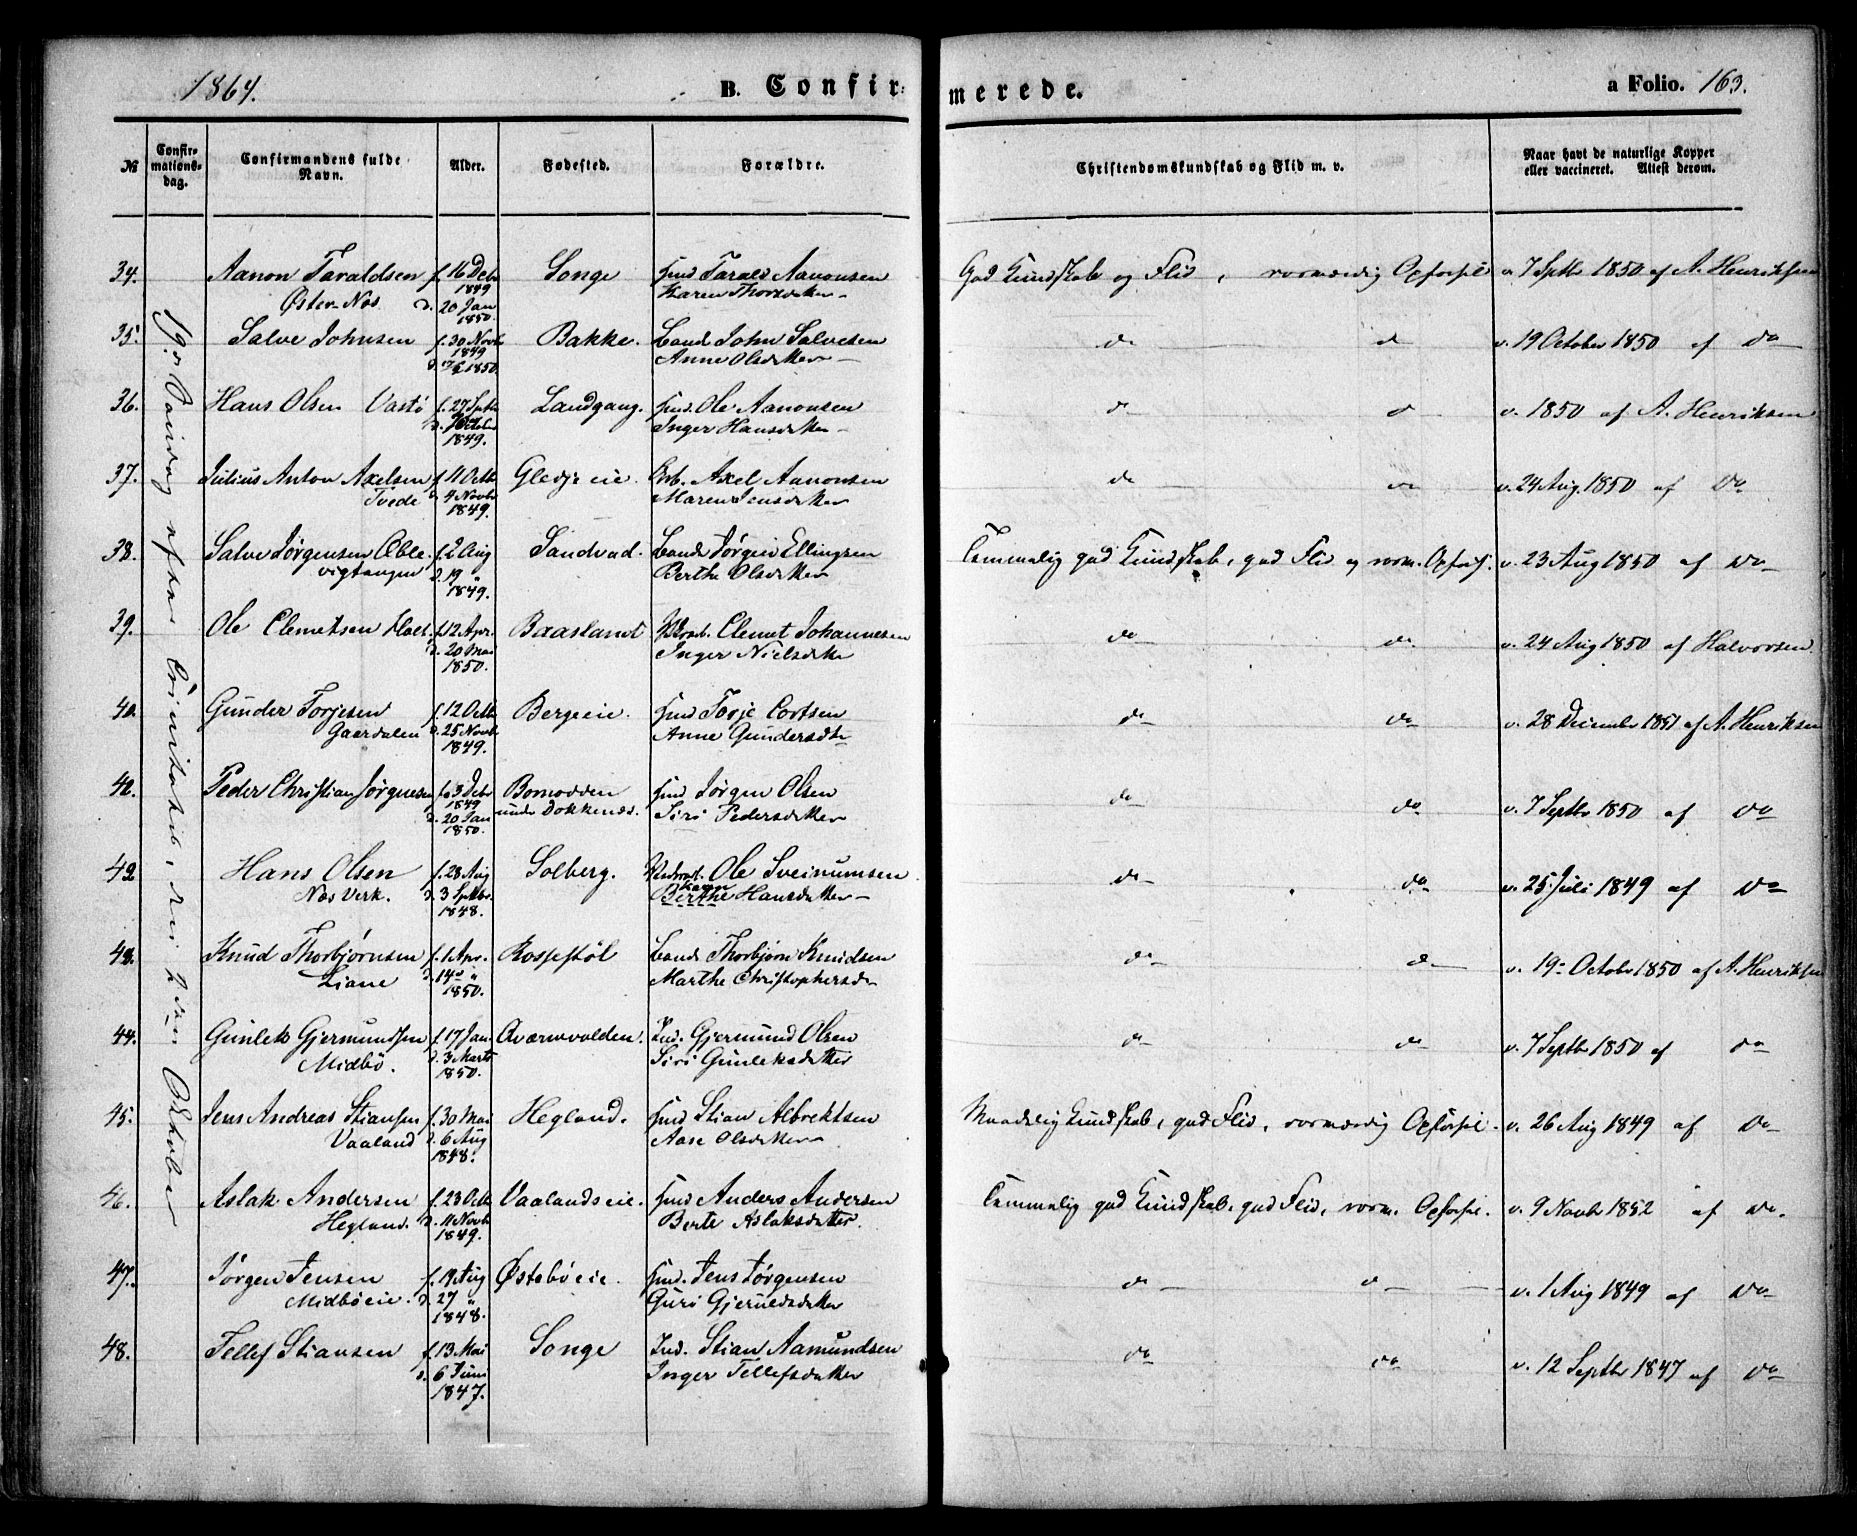 1864.
B. Confir-
merede.
a Folio. 163.
№
Confir-
mations-
dag.
Confirmandens fulde
Navn.
Alder.
Fødested.
Forældre.
Christendomskundskab og Flid m. v.
Naar havt de naturlige Kopper
eller vaccineret. Attest derom.
19de Søndag efter Trinitatis, den 2den Oktober
34. Aanon Taraldsen f. 16 Debr Songe Gmd Tarald Aanonsen God Kundskab og Flid, sømmedig Opførsel v. 7 Septbr 1850 af A. Henriksen
Øster-Næs. 1849 Karen Thorsdatter
d. 20 Jan
1850.
35. Salve Johnsen f. 30 Novb Bakke. Gmd John Salvesen do do v. 19 October 1850 af do
1849 Anne Olsdatter
1850.
36. Hans Olsen Vastø f. 27 Septb Landgang. Gmd. Ole Aanonsen do do v. 1850 af A. Henriksen
Octobr Inger Hansdatter
1849.
37. Julius Anton Axelsen f. 11 Octb Gledjeeie. Arb. Axel Aanonsen do do v. 24 Aug. 1850 af do
Tvede d. 4 Novbr Maren Jensdatter
1849.
38. Salve Jørgensen Æble- f. 2 Aug Sandvad. Jørgen Ellingsen Temmelig god Kundskab, god Flid og Opførs. v. 23 Aug 1850 af do
vigtangen d. 19 " Berthe Olsdatter
1849.
39. Ole Clemetsen f. 12 Apr. Baasland Clemet Johannesen do do v. 24 Aug 1850 af Halvorsen.
d. 20 Mai Inger Nielsdatter
1850.
40. Gunder Torjesen f. 12 Octb Bergeeie. Gmd Torje Cortsen do do v. 28 December 1851 af A. Henriksen
Gaardalen d. 25 Novb Anne Gundersdtr
1849.
42. Peder Christian Jørgensen f. 3 Debr Bomodden Gmd Jørgen Olsen do do v. 7 Septbr 1850 af do
1849 under Dokkened. Siri Pedersdatter
d. 20 Jan
1850.
42. Hans Olsen f. 28 Aug Solberg. Ole Sveinumsen do do v. 25 Juli 1849 af do
Næs Verk. d. 3 Septbr. Karen
Berthe Hansdatter
1848.
42. Knud Thorbjørnsen f. 1 Apr. Rossestøl Thorbjørn Knudsen do do v. 19 Octobr 1850 af A. Henriksen
Liane d. 14 " Marthe Christophersdr
1850.
44. Gunlek Gjermundsen f. 17 Jan. Qværnvolden. Ind. Gjermund Olsen do do v. 7 Septbr 1850 af do
Midbö. d. 3 Marts Siri Gunleksdatter
1850.
45. Jens Andreas Stiansen f. 30 Mai Hegland. Gmd Stian Albrektsen Maadelig Kundskab, god Flid, Opførsel. v. 26 Aug 1849 af do
Vaaland d. 6 Aug Aase Olsdatter
1848.
46. Aslak Andersen f. 23 Octb Vaalandseie. Gmd Anders Andersen Temmelig god Kundskab, god Flid, Opførsel. v. 9 Novb 1852 af do.
Hegland. d. 11 Novb Berte Aslaksdatter.
1849.
47. Jørgen Jensen f. 19 Aug Østebøeie. Gmd. Jens Jørgensen do do v. 1 Aug 1849 af do
Midbøeie. d. 27 " Guri Gjeruldsdatter
1848.
48. Tellef Stiansen f. 13 Mai Songe Ind. Stian Aamundsen do do v. 12 Septbr 1847 af do
d. 6 Juni Inger Tellefsdatter
1847.